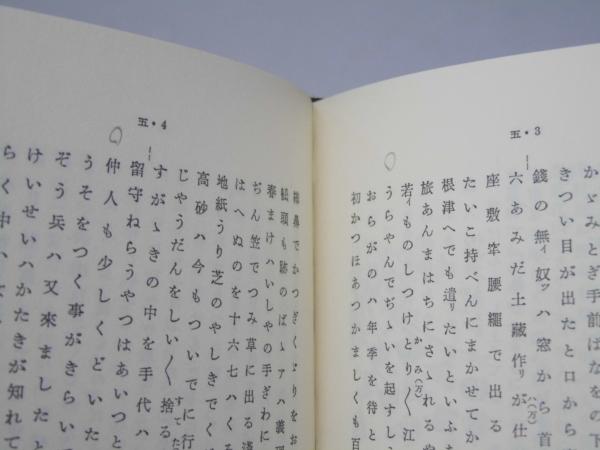 五・3
かゞみとぎ手前ばなをの下
きつい目が出たとロから
銭の無イ奴ツハ窓から首
六あみだ土蔵作リが仕
座敷牢腰縄で出る
たいこ持べんにまかせてか
根津へでも遣リたいといふ
旅あんまはちにさゝれるや
若イものしつけとり〱江
うらやんでぢゞいを起すし
おらがのハ年季を待と
初かつほあつかましくも百
五・4
樽鼻でかつぎくゞりをお
船頭も跡のばゝアハ義理
春まけハいしやの手ぎわに
ぢん笠でつみ草に出る
はへぬのを十六七ハくろ
地紙うり芝のやしきでく
高砂ハ今もついでに行
じやうだんをしい〱捨る
すがゞきの中を手代ハ
留守ねらうやつはあいつと
仲人も少しくどいた
うそをつく事がきらい
ぞう兵ハ又来ましたと
けいせいハかたきが知れて
らく中ハ